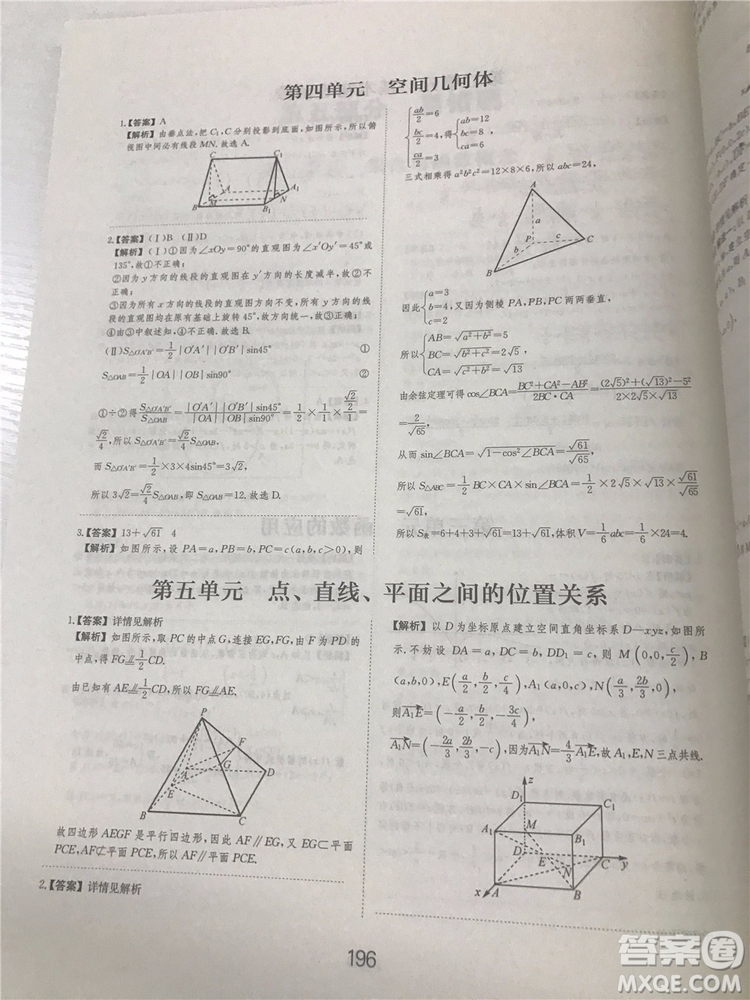 第四单元　空间几何体
1.【答案】A
【解析】由垂点法,把C₁,C分别投影到底面,如图所示,所以俯
视图中间必有线段MN.故选A.
C C₁
A A₁
M N
B B₁
2.【答案】(Ⅰ)B　(Ⅱ)D
【解析】(Ⅰ)①因为∠xOy=90°的直观图为∠x′Oy′=45°或
135°,故①不正确;
②因为y方向的线段的直观图在y′方向的长度减半,故②不
正确;
③因为所有x方向的线段的直观图方向不变,所有y方向的线
段的直观图均在原基础上旋转45°,故③不正确;
④由③中叙述知,④不正确.故选B.
(Ⅱ)S△O′A′B′=1/2|O′A′||O′B′|sin45°　①
S△OAB=1/2|OA||OB|sin90°　②
①÷②得S△O′A′B′/S△OAB=|O′A′||O′B′|sin45°/|OA||OB|sin90°=1/2×1/1×(√2/2)/1=
√2/4,所以S△O′A′B′=√2/4 S△OAB.
而S△O′A′B′=1/2×3×4sin45°=3√2,
所以3√2=√2/4 S△OAB,即S△OAB=12.故选D.
3.【答案】13+√61　4
【解析】如图所示,设PA=a,PB=b,PC=c(a,b,c>0),则
{ab/2=6
bc/2=4,得
ca/2=3
{ab=12
bc=8,
ca=6
三式相乘得a²b²c²=12×8×6,所以abc=24,
A
a
P c C
b
B
因此{a=3
b=4,又因为侧棱PA,PB,PC两两垂直,
c=2
所以{AB=√(a²+b²)=5
BC=√(b²+c²)=2√5,
CA=√(a²+c²)=√13
由余弦定理可得cos∠BCA=(BC²+CA²-AB²)/(2BC·CA)=((2√5)²+(√13)²-5²)/(2×2√5×√13)
=2/√65,
从而sin∠BCA=√(1-cos²∠BCA)=√61/√65,
所以S△ABC=1/2×BC×CA×sin∠BCA=1/2×2√5×√13×√61/√65
=√61,
所以S表=6+4+3+√61=13+√61,体积V=1/6abc=1/6×24=4.
第五单元　点、直线、平面之间的位置关系
1.【答案】详情见解析
【解析】如图所示,取PC的中点G,连接EG,FG,由F为PD的
中点,得FG⫽1/2CD.
由已知有AE⫽1/2CD,所以FG⫽AE.
P
F
A G D
E
B C
故四边形AEGF是平行四边形,因此AF∥EG,又EG⊂平面
PCE,AF⊄平面PCE,所以AF∥平面PCE.
2.【答案】详情见解析
【解析】以D为坐标原点建立空间直角坐标系D—xyz,如图所
示.不妨设DA=a,DC=b,DD₁=c,则M(0,0,c/2),B
(a,b,0),E(a/2,b/2,c/4),A₁(a,0,c),N(a/3,2b/3,0),
则A₁E=(-a/2,b/2,-3c/4),
A₁N=(-2a/3,2b/3,-c),因为A₁N=4/3A₁E,故A₁,E,N三点共线.
z
D₁ C₁
A₁ M B₁
D E C y
N
x A B
196
答案圈
MXQE.COM